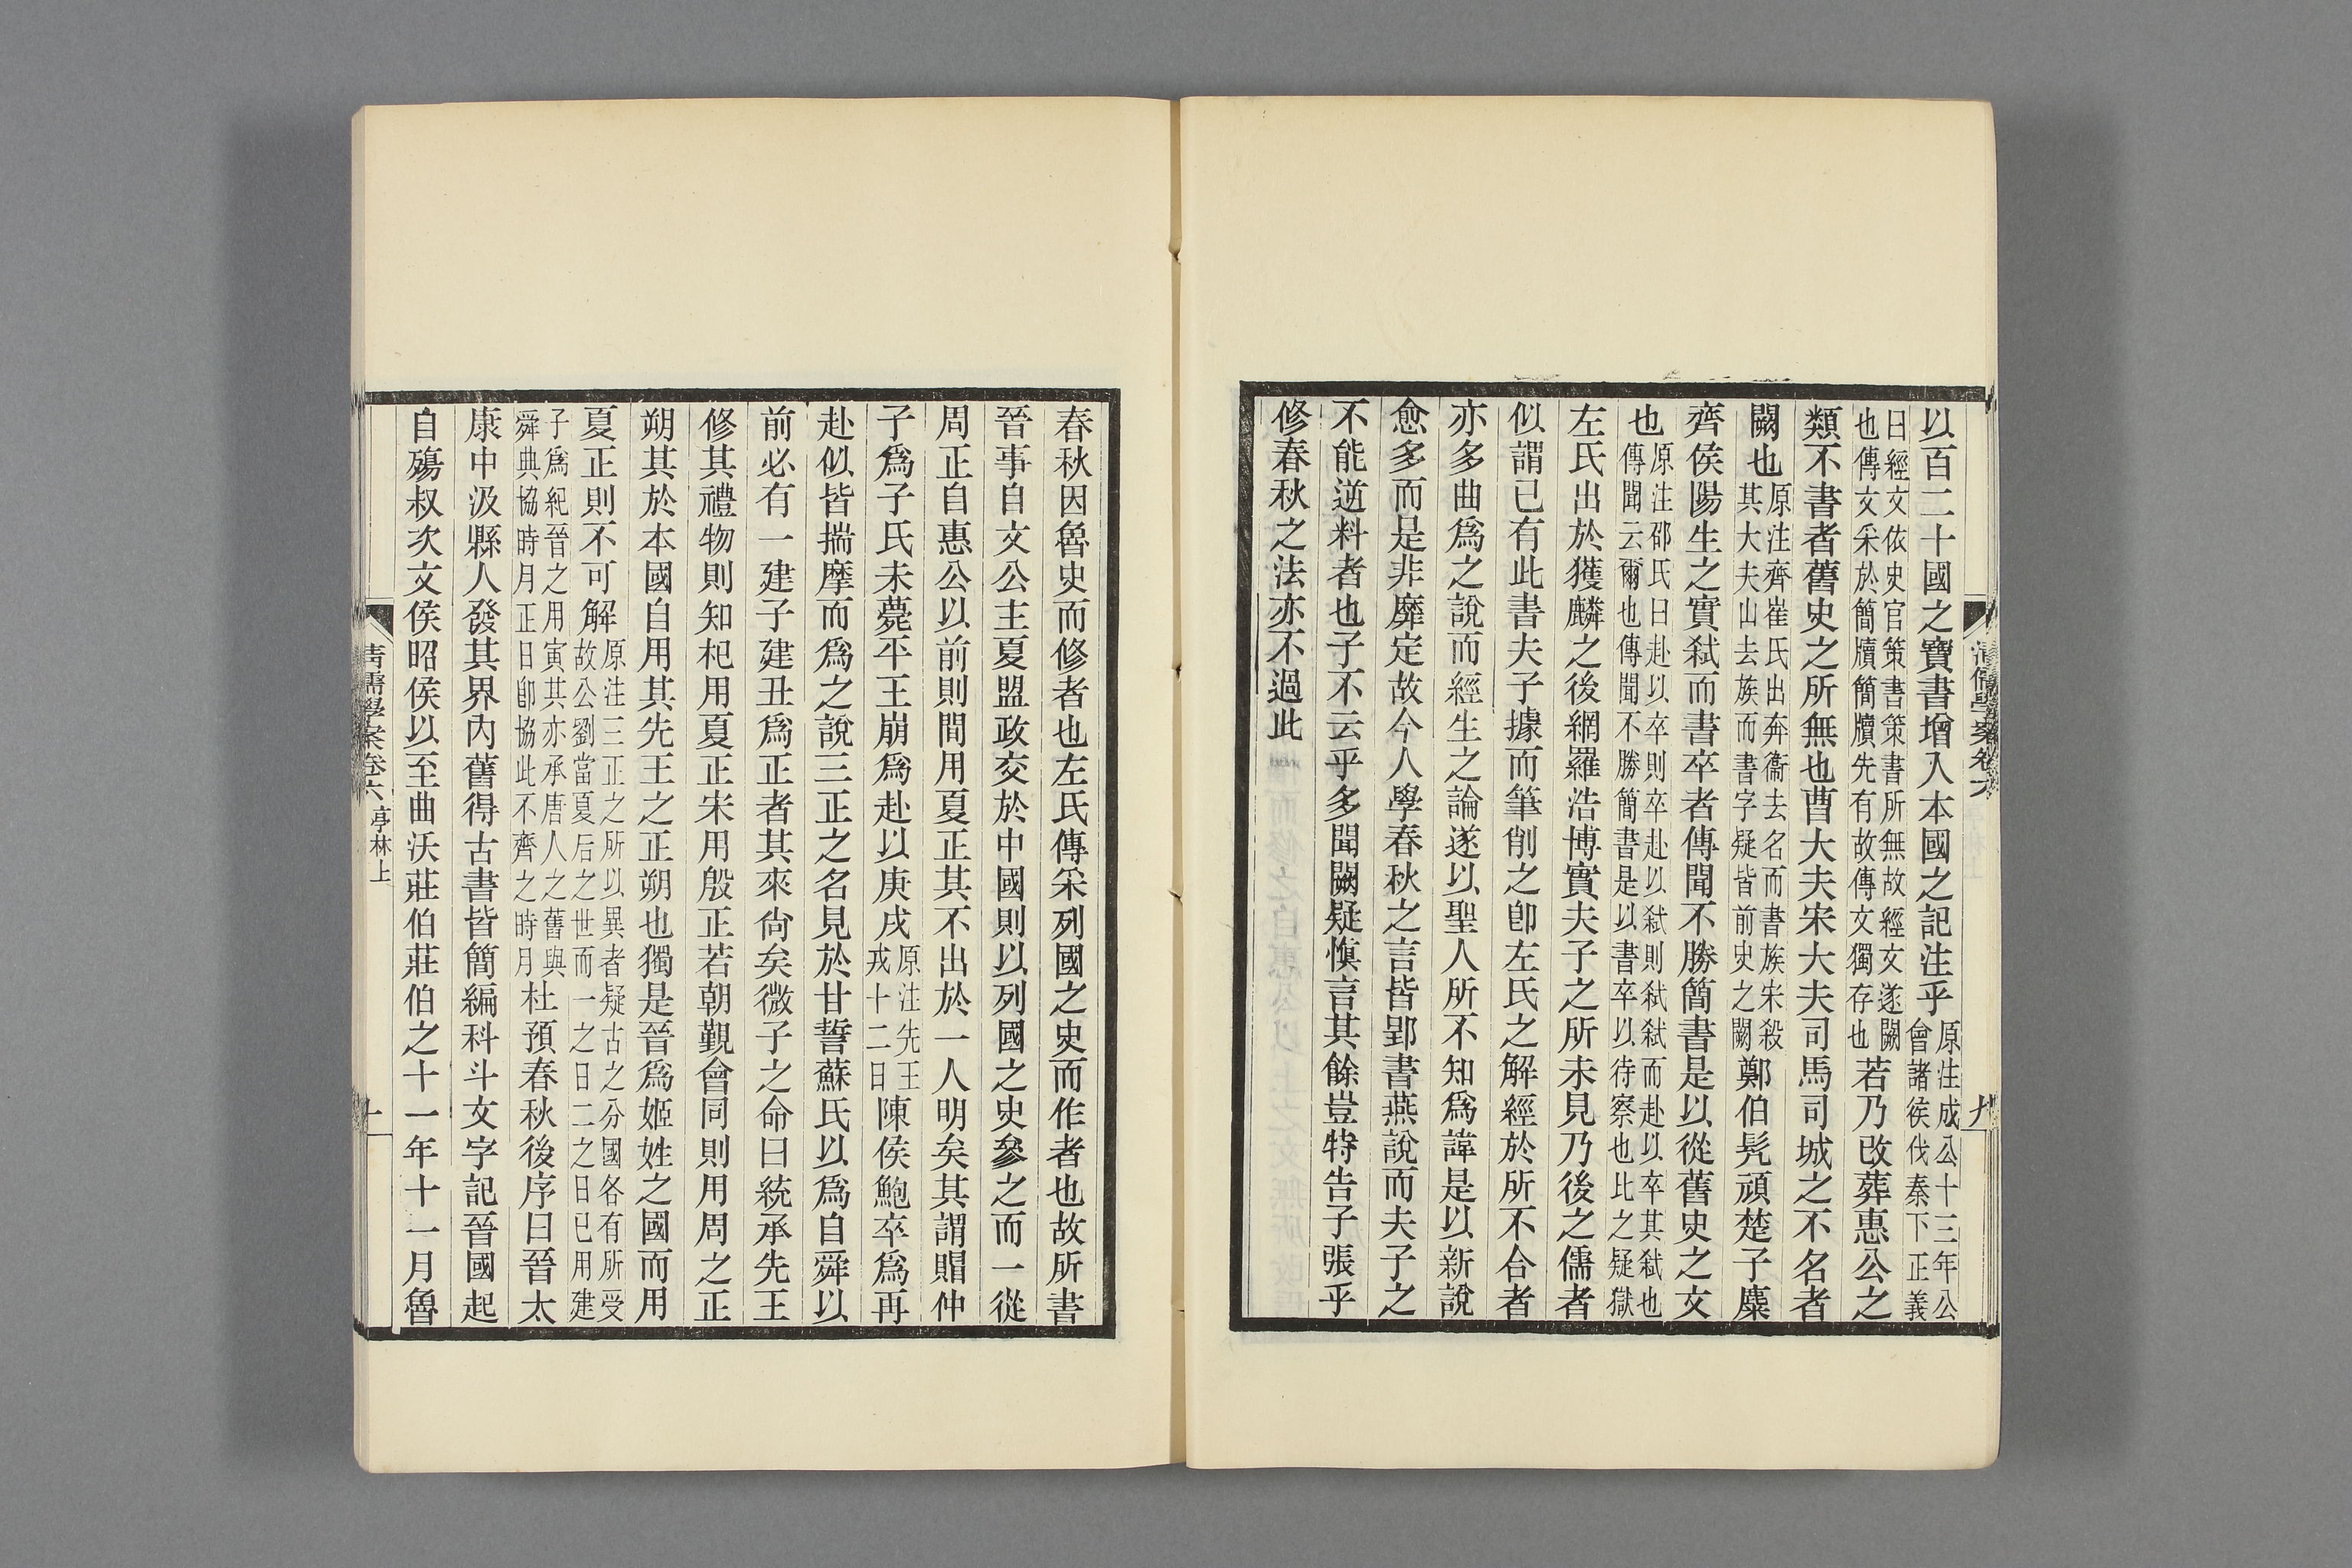 以百二十國之寶書增入本國之記注乎原注成公十三年公會諸侯伐秦下正義
曰經文依史官策書策書所無故經文遂闕也傳文采於簡牘簡牘先有故傳文獨存也若乃改葬惠公之
類不書者舊史之所無也曹大夫宋大夫司馬司城之不名者
闕也原注齊崔氏出奔衞去名而書族宋殺其大夫山去族而書字疑皆前史之闕鄭伯髠頑楚子麇
齊侯陽生之實弒而書卒者傳聞不勝簡書是以從舊史之文
也原注邵氏曰赴以卒則卒赴以弒則弒弒而赴以卒其弒也傳聞云爾也傳聞不勝簡書是以書卒以待察也比之疑獄
左氏出於獲麟之後網羅浩博實夫子之所未見乃後之儒者
似謂已有此書夫子據而筆削之卽左氏之解經於所不合者
亦多曲爲之說而經生之論遂以聖人所不知爲諱是以新說
愈多而是非靡定故今人學春秋之言皆郢書燕說而夫子之
不能逆料者也子不云乎多聞闕疑愼言其餘豈特告子張乎
修春秋之法亦不過此
清儒學案卷六
九
春秋因魯史而修者也左氏傳采列國之史而作者也故所書
晉事自文公主夏盟政交於中國則以列國之史參之而一從
周正自惠公以前則間用夏正其不出於一人明矣其謂賵仲
子爲子氏未薨平王崩爲赴以庚戌原注先王戎十二日陳侯鮑卒爲再
赴似皆揣摩而爲之說三正之名見於甘誓蘇氏以爲自舜以
前必有一建子建丑爲正者其來尙矣微子之命曰統承先王
修其禮物則知杞用夏正宋用殷正若朝覲會同則用周之正
朔其於本國自用其先王之正朔也獨是晉爲姬姓之國而用
夏正則不可解原注三正之所以異者疑古之分國各有所受故公劉當夏后之世而一之日二之日已用建
子爲紀晉之用寅其亦承唐人之舊與舜典協時月正日卽協此不齊之時月杜預春秋後序曰晉太
康中汲縣人發其界內舊得古書皆簡編科斗文字記晉國起
自殤叔次文侯昭侯以至曲沃莊伯莊伯之十一年十一月魯
清儒學案卷六 亭林上